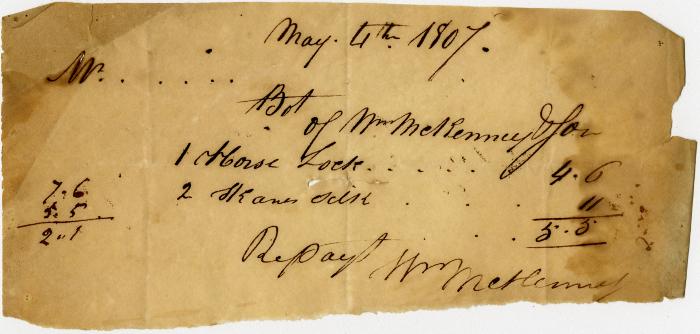 May 4th 1807.
Mr. . . . .
Bot
of Wm McKenney & Son
1 Horse Lock . . . . . 4.6
2 Skanes Silk . . . 11
. . 5.5
7.6
5.5
2.1
Recd payt Wm McKenney